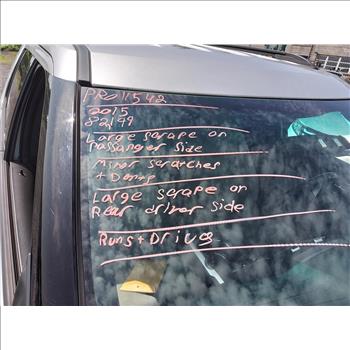 PRO11542
2015
82199
Large scrape on
Passanger side
minor scratches
+ Dents
Large scrape on
Rear driver side
Runs + Drives